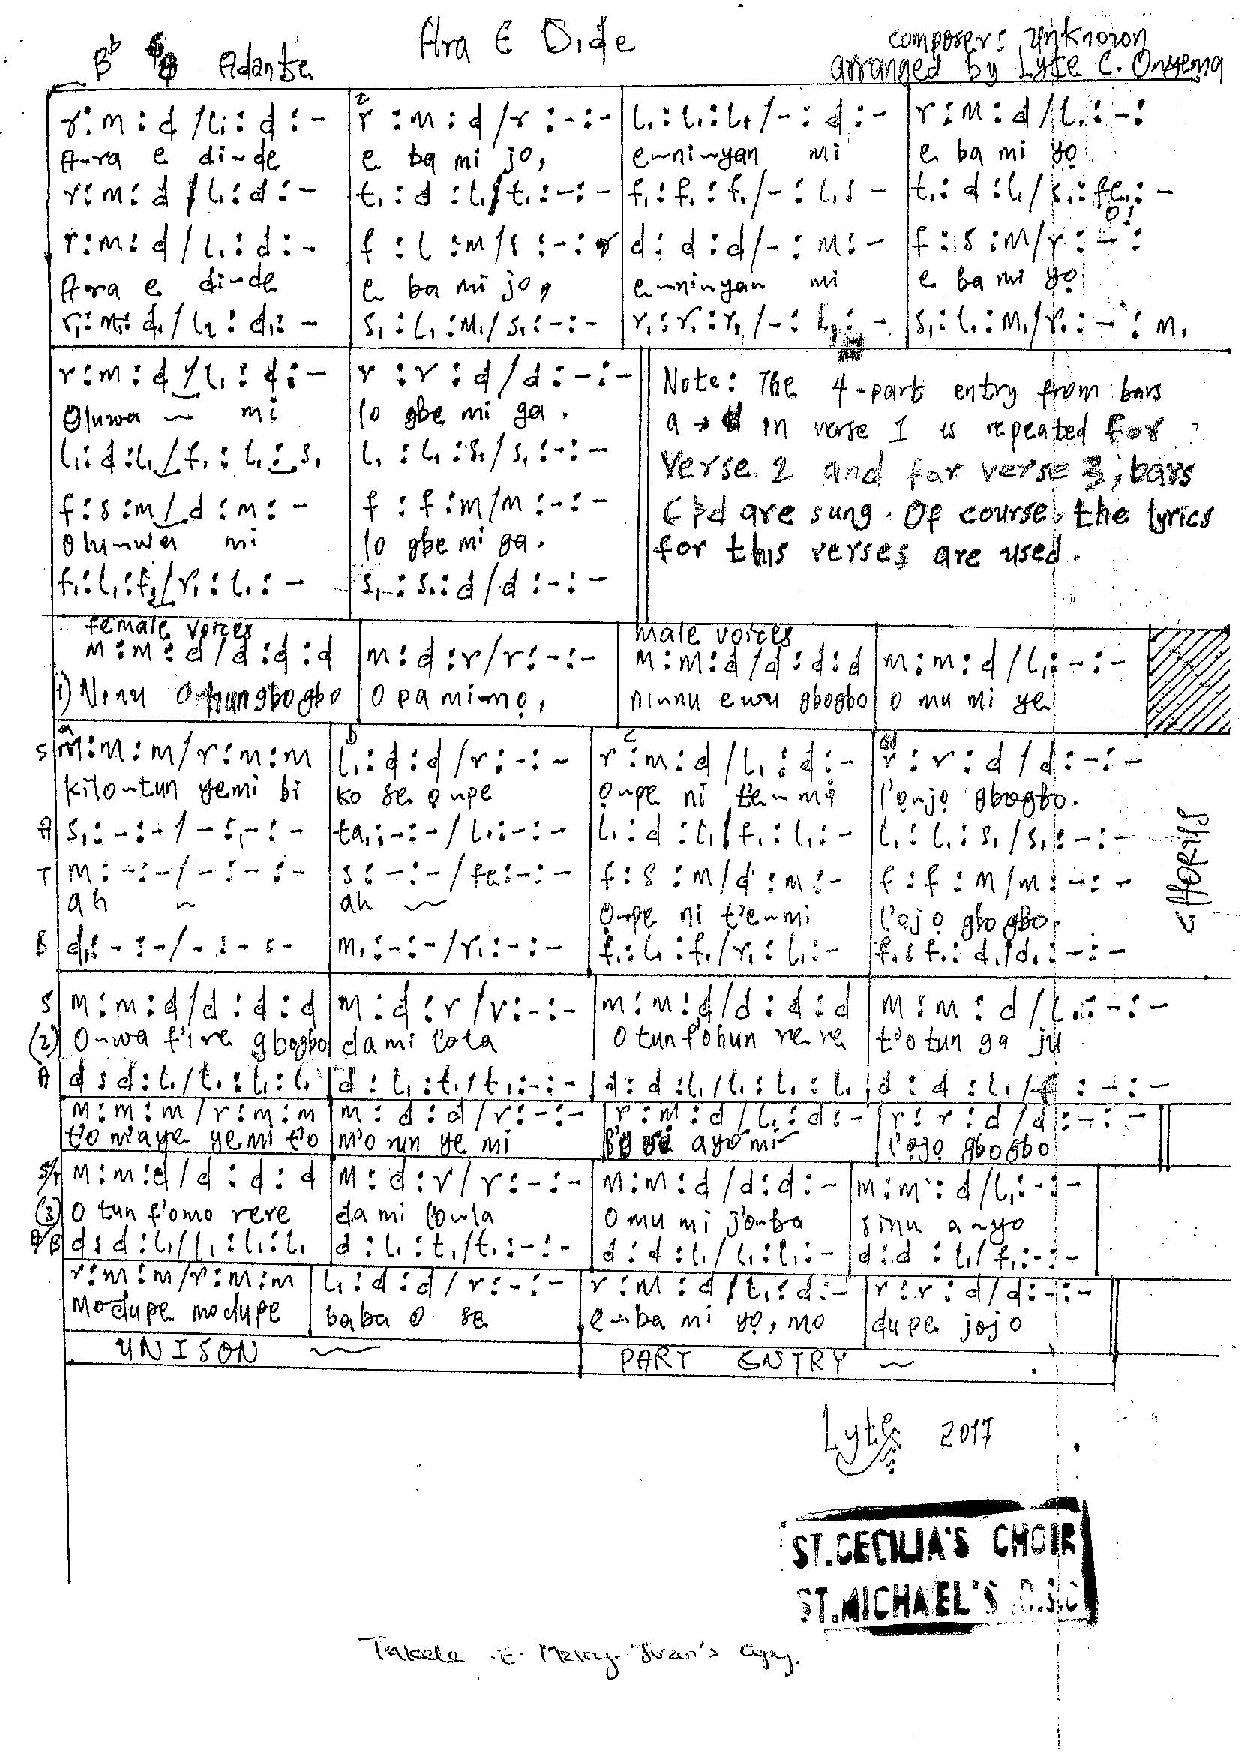 Ara E Dide
Bb Adante
composer: unknown
arranged by Lyte C. Onyema
r:m:d/l₁:d:- | r:m:d/r:-:- | l₁:l₁:l₁/-:d:- | r:m:d/l₁:-:
A-ra e di-de | e ba mi jo, | e-ni-yan mi | e ba mi yo
r:m:d/l₁:d:- | t₁:d:l₁/t₁:-:- | f₁:f₁:f₁/-:l₁: - | t₁:d:l₁/s₁:fe₁:-
r:m:d/l₁:d:- | f:l:m/s:-: | d:d:d/-:m:- | f:s:m/r:-:
A-ra e di-de | e ba mi jo, | e-ni-yan mi | e ba mi yo
r₁:m₁:d₁/l₂:d₁:- | s₁:l₁:m₁/s₁:-:- | r₁:r₁:r₁/-: | s₁:l₁:m₁/r₁:-:m₁
r:m:d/l₁:d:- | r:r:d/d:-:-
Oluwa ~ mi | lo gbe mi ga.
l₁:d:l₁/f₁:l₁:s₁ | l₁:l₁:s₁/s₁:-:-
f:s:m/d:m:- | f:f:m/m:-:-
Olu-wa mi | lo gbe mi ga.
f₁:l₁:f₁/r₁:l₁:- | s₁:s₁:d/d:-:-
Note: The 4-part entry from bars
a → d in verse 1 is repeated for
verse 2 and for verse 3, bars
C & d are sung. Of course, the lyrics
for this verses are used.
female voices | male voices
m:m:d/d:d:d | m:d:r/r:-:- | m:m:d/d:d:d | m:m:d/l₁:-:-
1) Ninu Ohungbogbo | O pa mi-mo, | ninnu ewu gbogbo | o mu mi ye
a | b | c | d
S m:m:m/r:m:m | l₁:d:d/r:-:- | r:m:d/l₁:d:- | r:r:d/d:-:-
kilo-tun yemi bi | ko se o-pe | o-pe ni te-mi | l'o-jo gbogbo.
A s₁:-:-/-:-:- | ta₁:-:-/l₁:-:- | l₁:d:l₁/f₁:l₁:- | l₁:l₁:s₁/s₁:-:-
T m:-:-/-:-:- | s:-:-/fe:-:- | f:s:m/d:m:- | f:f:m/m:-:-
ah ~ | ah ~ | O-pe ni t'e-mi | l'ojo gbogbo.
B d₁:-:-/-:-:- | m₁:-:-/r₁:-:- | f₁:l₁:f₁/r₁:l₁:- | f₁:f₁:d₁/d₁:-:-
CHORUS
S m:m:d/d:d:d | m:d:r/r:-:- | m:m:d/d:d:d | m:m:d/l₁:-:-
(2) O-wa f'ire gbogbo | da mi lola | O tun f'ohun re re | t'o tun ga ju
A d:d:l₁/l₁:l₁:l₁ | d:l₁:t₁/t₁:-:- | d:d:l₁/l₁:l₁:l₁ | d:d:l₁/ :-:-
m:m:m/r:m:m | m:d:d/r:-:- | r:m:d/l₁:d:- | r:r:d/d:-:-
t'o m'aye yemi t'o | m'o run ye mi | ayo mi | l'ojo gbogbo
S/T m:m:d/d:d:d | m:d:r/r:-:- | m:m:d/d:d:- | m:m:d/l₁:-:-
(3) O tun f'omo rere | da mi lo-la | O mu mi jo-ba | sinu a-yo
A/B d:d:l₁/l₁:l₁:l₁ | d:l₁:t₁/t₁:-:- | d:d:l₁/l₁:l₁:- | d:d:l₁/f₁:-:-
r:m:m/r:m:m | l₁:d:d/r:-:- | r:m:d/l₁:d:- | r:r:d/d:-:-
Modupe modupe | baba o se | e-ba mi yo, mo | dupe jojo
UNISON ~ | PART ENTRY ~
Lyte 2017
ST.CECILIA'S CHOIR
ST.MICHAEL'S
copy.